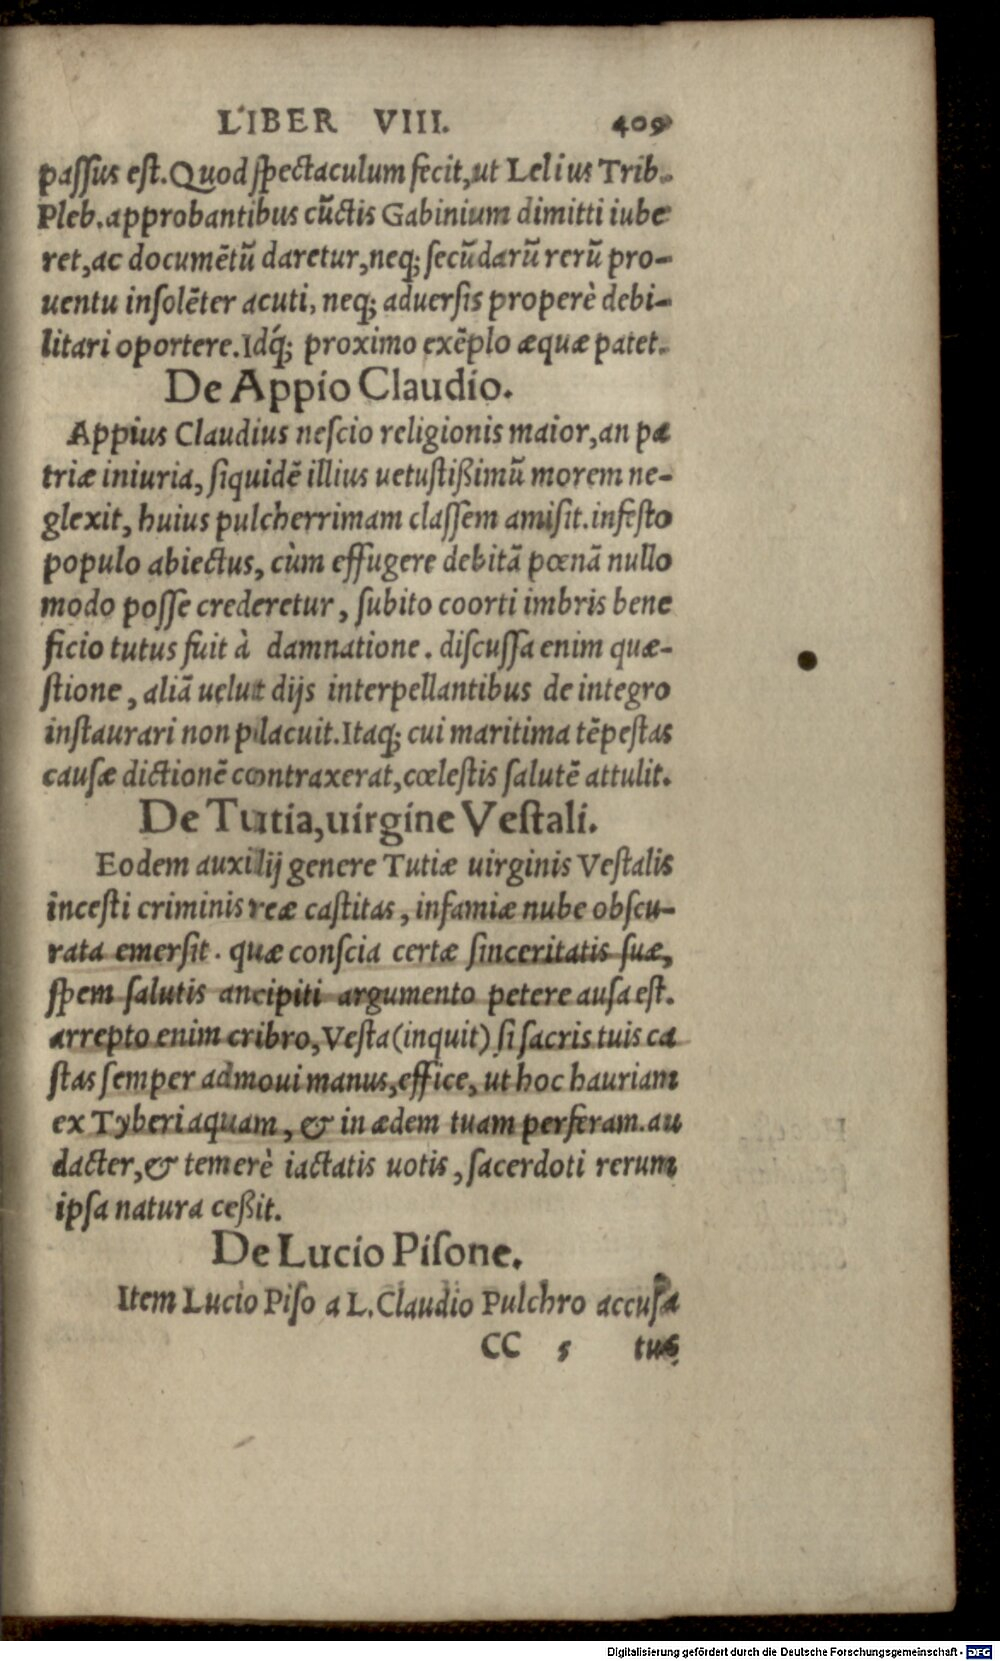 LIBER VIII. 409
paſſus eſt. Quod ſpectaculum fecit, ut Lelius Trib.
Pleb. approbantibus cūctis Gabinium dimitti iube
ret, ac documētū daretur, neq; ſecūdarū rerū pro-
uentu inſolēter acuti, neq; aduerſis properè debi-
litari oportere. Idq́; proximo exēplo æquæ patet.
De Appio Claudio.
Appius Claudius neſcio religionis maior, an pa
triæ iniuria, ſiquidē illius uetuſtißimū morem ne-
glexit, huius pulcherrimam claſſem amiſit. infeſto
populo abiectus, cùm effugere debitā pœnā nullo
modo poſſe crederetur, ſubito coorti imbris bene
ficio tutus fuit à damnatione. diſcuſſa enim quæ-
ſtione, aliā uelut dijs interpellantibus de integro
inſtaurari non placuit. Itaq; cui maritima tēpeſtas
cauſæ dictionē contraxerat, cœleſtis ſalutē attulit.
De Tutia, uirgine Veſtali.
Eodem auxilij genere Tutiæ uirginis Veſtalis
inceſti criminis reæ caſtitas, infamiæ nube obſcu-
rata emerſit. quæ conſcia certæ ſinceritatis ſuæ,
ſpem ſalutis ancipiti argumento petere auſa eſt.
arrepto enim cribro, Veſta (inquit) ſi ſacris tuis ca
ſtas ſemper admoui manus, effice, ut hoc hauriam
ex Tyberi aquam, & in ædem tuam perferam. au
dacter, & temerè iactatis uotis, ſacerdoti rerum
ipſa natura ceßit.
De Lucio Piſone.
Item Lucio Piſo a L. Claudio Pulchro accuſa
CC 5 tus
Digitalisierung gefördert durch die Deutsche Forschungsgemeinschaft - DFG